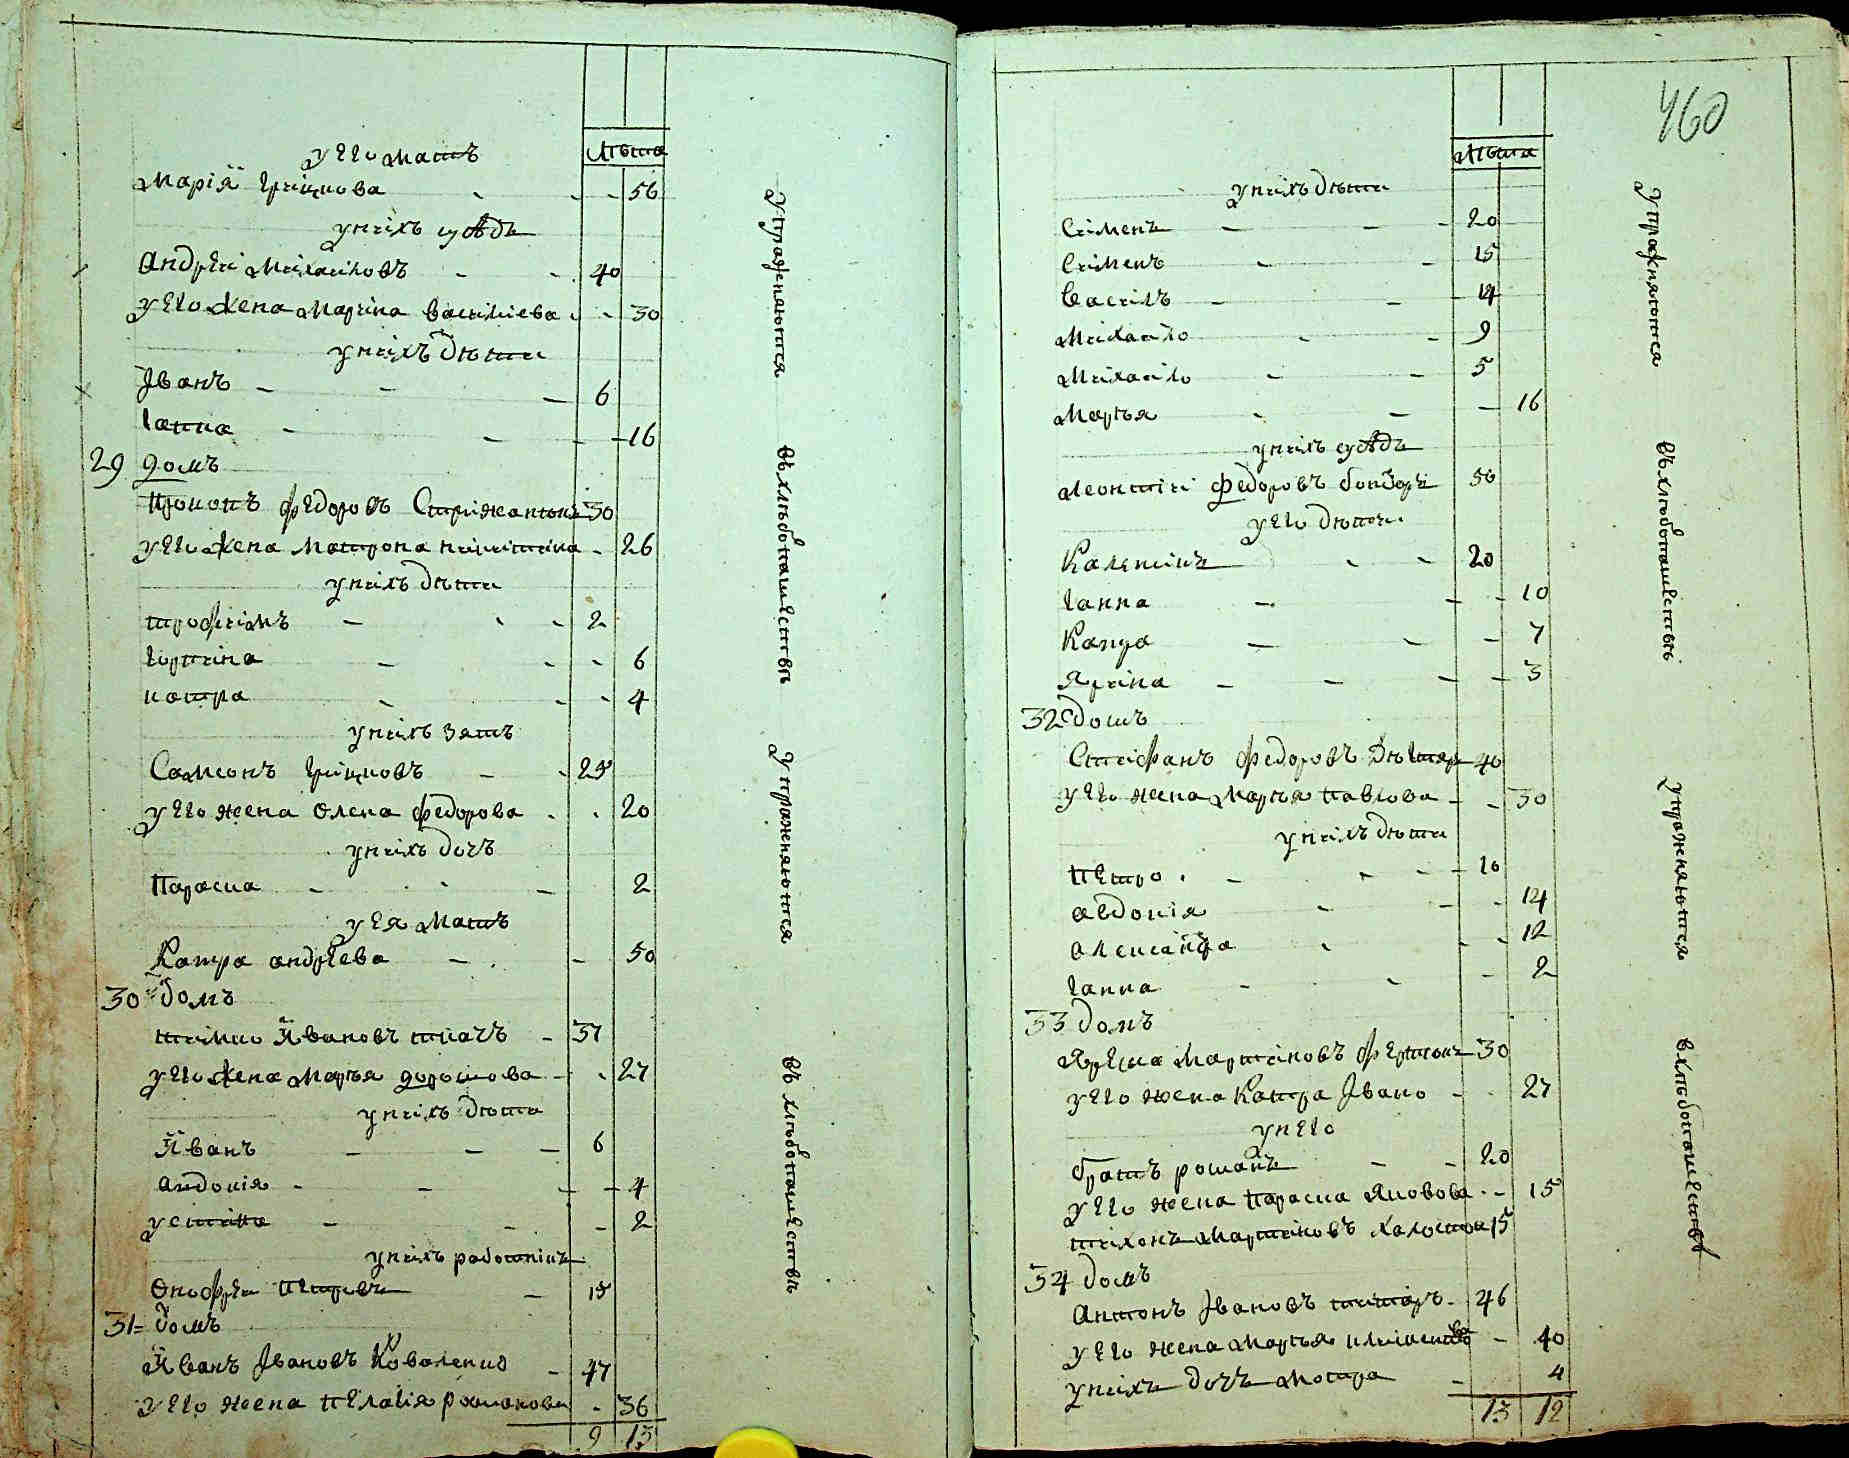 лѣта
у его мать
Марія Грицкова 56
у нихъ сусѣдъ
Андрѣи Михаиловъ 40
у его жена Марина Василіева 30
у нихъ дѣти
Іванъ 6
Ганна 16
29 домъ
Прокопъ Федоровъ 30
у его жена Матрона 26
у нихъ дѣти
трофимъ 2
Горпина 6
катра 4
у нихъ зять
Самсонъ Грицковъ 25
у его жена Олена Федорова 20
у нихъ дочъ
Параска 2
у ея мать
Катра андрѣева 50
30 домъ
тимко Йвановъ ткачъ 37
у его жена Марѣя дорошова 27
у нихъ дѣти
Йванъ 6
Авдокія 4
устина 2
у нихъ работникъ
Онофрѣи Петровъ 15
31 домъ
Йванъ Івановъ Коваленко 47
у его жена Пелагія романова 36
9 13
Упражняются
въ хлѣбопашествѣ
Упражняются
въ хлѣбопашествѣ
460
лѣта
у нихъ дѣти
Сименъ 20
Сименъ 15
Василъ 14
Михаило 9
Михаило 5
Марѣя 16
у нихъ сусѣдъ
Леонтіи Федоровъ 50
у его дѣти
Каленикъ 20
Ганна 10
Катра 7
Ярина 3
32 домъ
Стифанъ Федоровъ Дѣгтяр 40
у его жена Марѣя Павлова 30
у нихъ дѣти
Петро 10
Авдокія 14
Александра 12
Ганна 2
33 домъ
Ярема Мартиновъ 30
у его жена Катра Івано 27
у него
братъ романъ 20
у его жена Параска Яковова 15
тихонъ Мартиновъ холостои 15
34 домъ
Антонъ Івановъ титаръ 46
у его жена Марѣя 40
у нихъ дочъ Мотра 4
13 12
Упражняются
въ хлѣбопашествѣ
Упражняются
в хлѣбопашествѣ